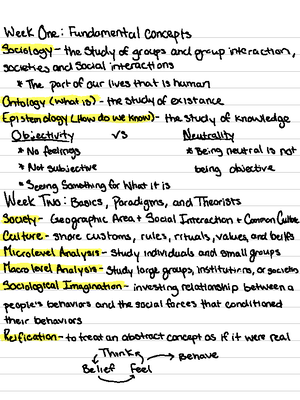 Week One: Fundamental Concepts
Sociology - the study of groups and group interaction,
societies and social interactions
* The part of our lives that is human
Ontology (what is) - the study of existance
Epistemology (How do we know) - the study of knowledge
Objectivity vs Neutrality
* No feelings * Being neutral is not
* Not subjective being objective
* Seeing Something for What it is
Week Two: Basics, Paradigms, and Theorists
Society - Geographic Area + Social Interaction + Common Culture
Culture - share customs, rules, rituals, values, and beliefs
Microlevel Analysis - Study individuals and small groups
Macro level Analysis - Study large groups, institutions, or societies
Sociological Imagination - investing relationship between a
people's behaviors and the social forces that conditioned
their behaviors
Reification - to treat an abstract concept as if it were real
Think Behave
Belief Feel